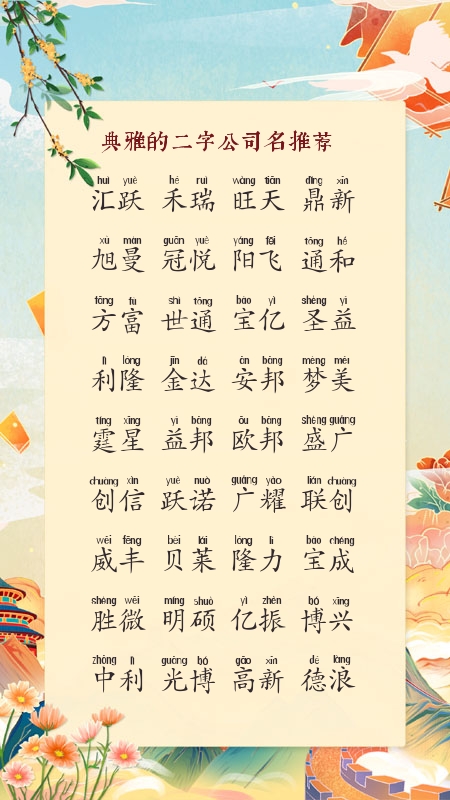 典雅的二字公司名推荐
huì yuè hé ruì wàng tiān dǐng xīn
汇跃 禾瑞 旺天 鼎新
xù màn guān yuè yáng fēi tōng hé
旭曼 冠悦 阳飞 通和
fāng fù shì tōng bǎo yì shèng yì
方富 世通 宝亿 圣益
lì lóng jīn dá ān bāng mèng měi
利隆 金达 安邦 梦美
tíng xīng yì bāng ōu bāng shèng guǎng
霆星 益邦 欧邦 盛广
chuàng xìn yuè nuò guǎng yào lián chuàng
创信 跃诺 广耀 联创
wēi fēng bèi lái lóng lì bǎo chéng
威丰 贝莱 隆力 宝成
shèng wēi míng shuò yì zhèn bó xīng
胜微 明硕 亿振 博兴
zhōng lì guāng bó gāo xīn dé làng
中利 光博 高新 德浪